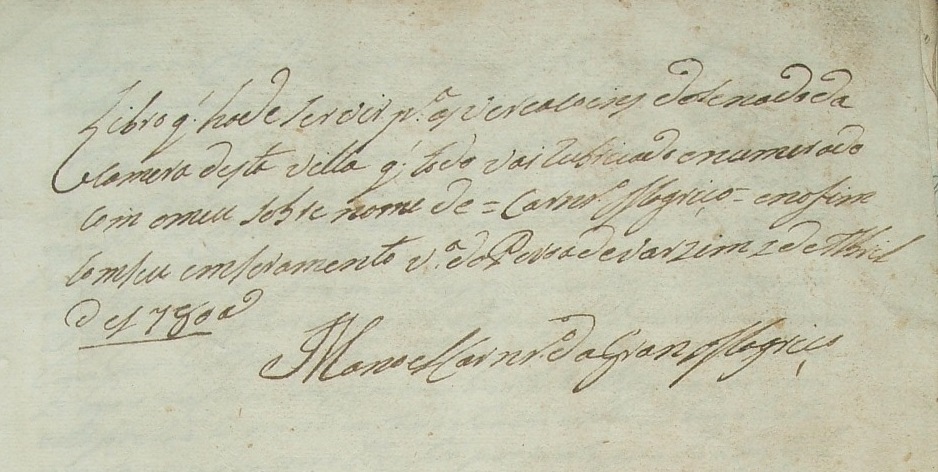 Libro q. hade servir p.ª as vereaçoins do Senado da
Camera desta villa q. todo vai Rubricado e numerado
com o meu sobre nome de = Carnr.º Magriço = e no fim
com seu emseramento v.ª da Povoa de Varzim 2 de Abril
de 1780
Manoel Carnr.º da Gran Magriço